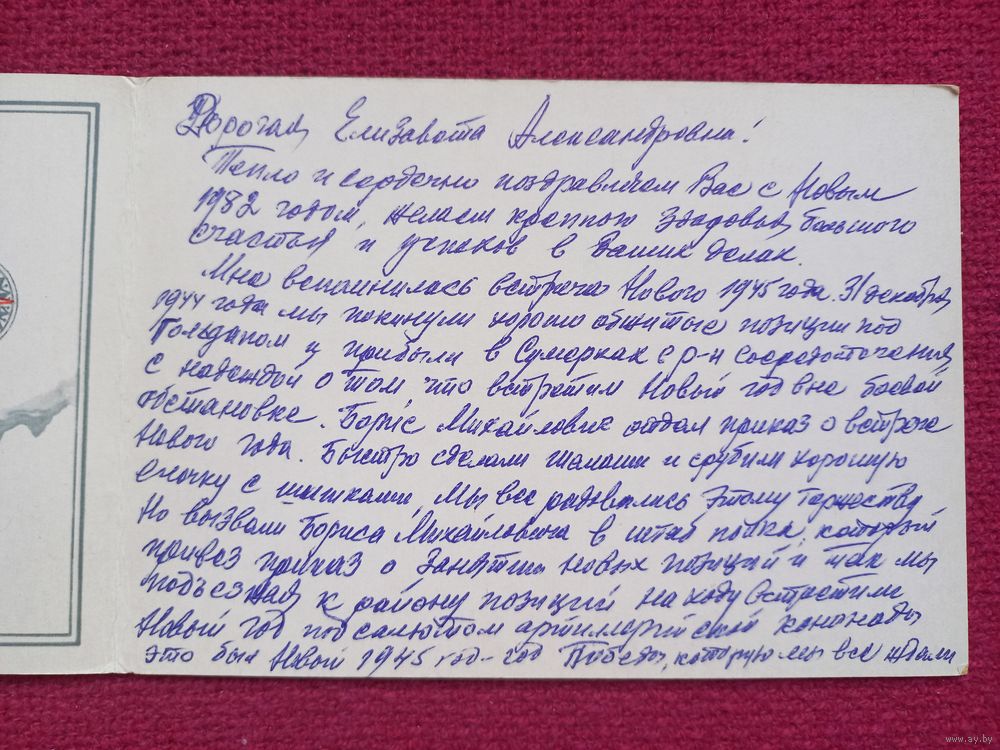 Дорогая Елизавета Александровна!
Тепло и сердечно поздравляем Вас с Новым
1982 годом, желаем крепкого здоровья, большого
счастья и успехов в Ваших делах.
Мне вспомнилась встреча Нового 1945 года. 31 декабря
1944 года мы покинули хорошо обжитые позиции под
Гольдапом и прибыли в Сумерках в р-н сосредоточения
с надеждой о том что встретим Новый год вне боевой
обстановке. Борис Михайлович отдал приказ о встрече
Нового года. Быстро сделали шалаши и срубили хорошую
елочку с шишками, мы все радовались этому торжеству
Но вызвали Бориса Михайловича в штаб полка, который
привез приказ о занятии новых позиций и так мы
подъезжая к району позиций на ходу встретили
Новый год под салютом артиллерийской канонады
Это был Новый 1945 год-год Победы, которую мы все ждали
www.ay.by